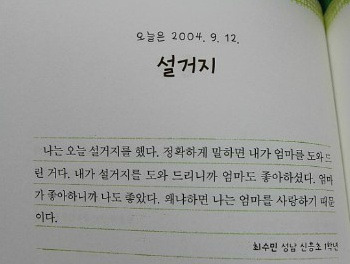 오늘은 2004. 9. 12.
설거지
나는 오늘 설거지를 했다. 정확하게 말하면 내가 엄마를 도와드
린 거다. 내가 설거지를 도와 드리니까 엄마도 좋아하셨다. 엄마
가 좋아하니까 나도 좋았다. 왜냐하면 나는 엄마를 사랑하기 때문
이다.
최수민 성남 신흥초 1학년